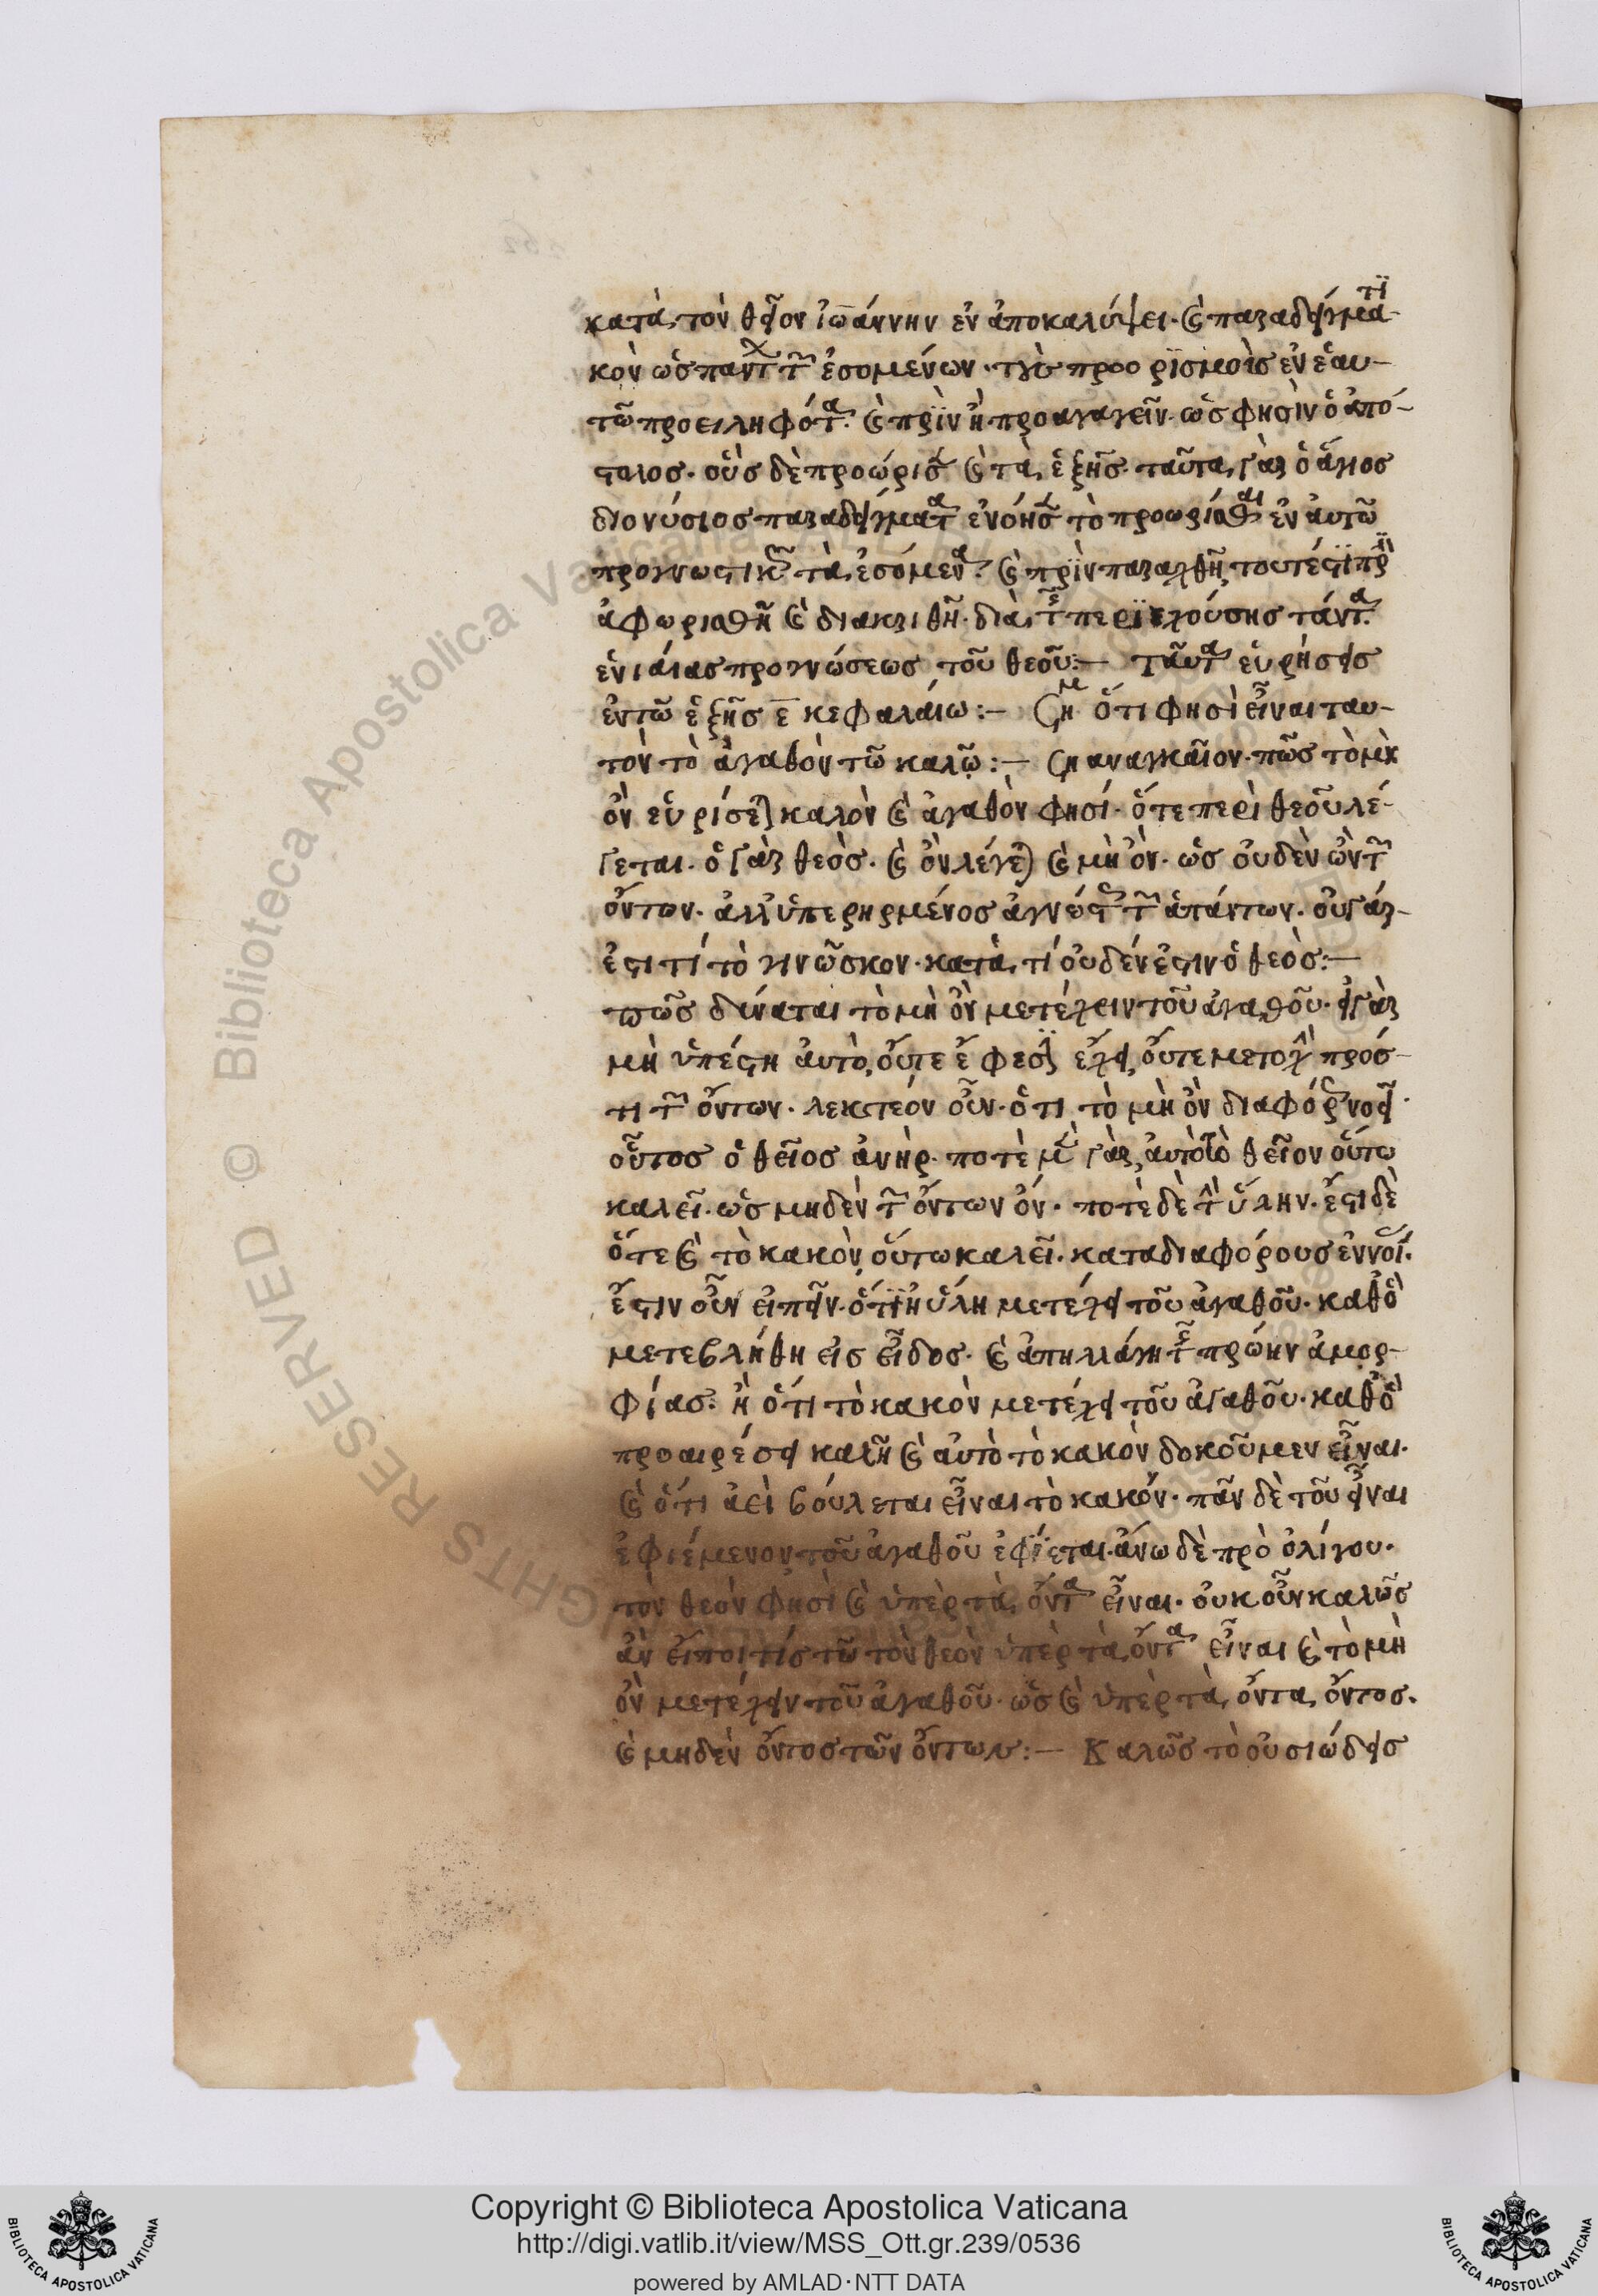 κατὰ τὸν θεῖον ἰωάννην ἐν ἀποκαλύψει· καὶ παραδειγματι
κὸν ὡς πάντων τῶν ἐσομένων· τοῖς προορισμοῖς ἐν ἑαυ–
τῷ προειληφότα· καὶ πρὶν ἢ προαγαγεῖν· ὡς φησὶν ὁ ἀπό–
στολος· οὓς δὲ προώρισε καὶ τὰ ἑξῆς· ταῦτα γὰρ ὁ ἅγιος
διονύσιος παραδείγματα ἐνόησε τὸ προωρίσθαι ἐν αὐτῷ
προγνωστικῶς τὰ ἐσόμενα· καὶ πρὶν παραχθῆ, τουτέστι πρὶν
ἀφωρισθῆ καὶ διακριθῆ· διὰ τῆς περιεχούσης πάντα
ἑνιαίας προγνώσεως τοῦ θεοῦ:— ταῦτα εὑρήσεις
ἐν τῷ ἑξῆς ε κεφαλαίω:— Σημ ὅτι φησὶ εἶναι ταυ–
τὸν τὸ ἀγαθὸν τῷ καλῷ:— Ση αναγκαῖον· πῶς τὸ μὴ
ὂν εὑρίσεται καλὸν καὶ ἀγαθὸν φησί· ὅτε περὶ θεοῦ λέ–
γεται· ὁ γὰρ θεὸς· καὶ ὂν λέγεται καὶ μὴ ὄν· ὡς οὐδὲν ὢν τῶν
ὄντων· ἀλλ' ὑπερηρμένος ἀγνώστως τῶν ἁπάντων· οὐ γάρ–
ἐστι τί τὸ γινῶσκον· κατὰ τί οὐδέν ἐστιν ὁ θεὸς:—
πῶς δύναται τὸ μὴ ὂν μετέχειν τοῦ ἀγαθοῦ· εἰ γὰρ
μὴ ὑπέστη αὐτὸ, οὔτε ἔφεσιν εἶχε, οὔτε μετοχὴν πρός–
τι τῶν ὄντων· λεκτέον οὖν· ὅτι τὸ μὴ ὂν διαφόρως νοεῖ·
οὗτος ὁ θεῖος ἀνὴρ· ποτὲ μὲν γὰρ, αὐτὸ τὸ θεῖον οὕτω
καλεῖ· ὡς μηδὲν τῶν ὄντων ὄν· ποτὲ δὲ τὴν ὕλην· ἔστι δὲ
ὅτε καὶ τὸ κακὸν, οὕτω καλεῖ· κατα διαφόρους ἐννοίας·
ἔστιν οὖν εἰπεῖν· ὅτι ἡ ὕλη μετέχει τοῦ ἀγαθοῦ· καθὸ
μετεβλήθη εἰς εἶδος· καὶ ἀπηλλάγη τῆς πρώην ἀμορ–
φίας· ἢ ὅτι τὸ κακὸν μετέχει τοῦ ἀγαθοῦ· καθὸ
προαιρέσει καλῆ καὶ αὐτὸ τὸ κακὸν δοκοῦμεν εἶναι·
καὶ ὅτι ἀεὶ βούλεται εἶναι τὸ κακόν· πᾶν δὲ τοῦ εἶναι
ἐφιέμενον, τοῦ ἀγαθοῦ ἐφίεται· ἄνω δὲ πρὸ ὀλίγου·
τὸν θεὸν φησὶ καὶ ὑπὲρ τὰ ὄντα εἶναι· οὐκ οὖν καλῶς
ἂν εἴποι τίς τῷ τὸν θεὸν ὑπὲρ τὰ ὄντα εἶναι καὶ τὸ μὴ
ὂν μετέχειν τοῦ ἀγαθοῦ· ὡς καὶ ὑπὲρ τὰ ὄντα, ὄντος·
καὶ μηδὲν ὄντος τῶν ὄντων:— Καλῶς τὸ οὐσιώδεις
Copyright © Biblioteca Apostolica Vaticana
http://digi.vatlib.it/view/MSS_Ott.gr.239/0536
powered by AMLAD·NTT DATA